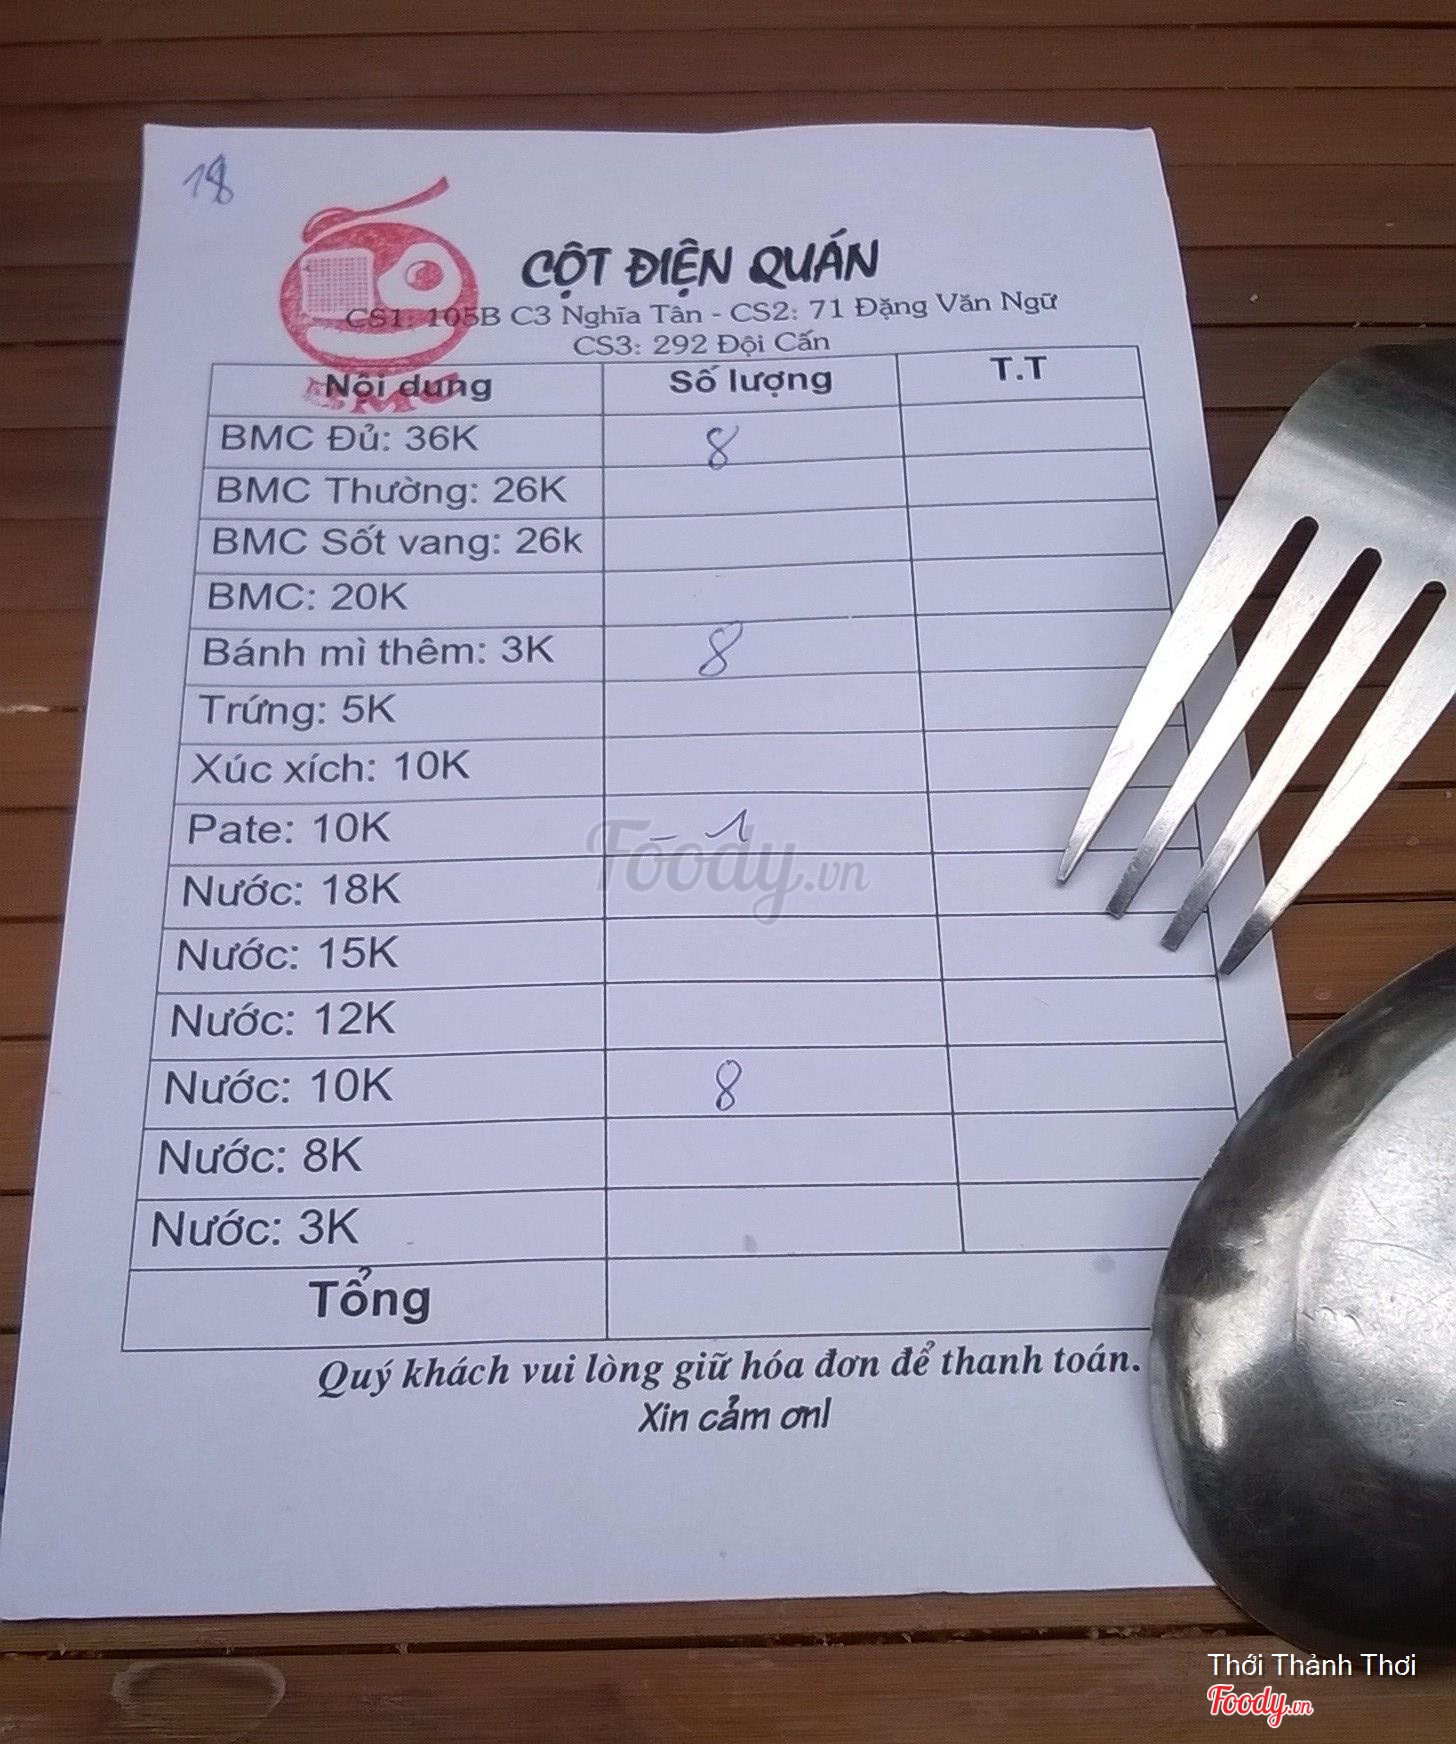 18
CỘT ĐIỆN QUÁN
CS1: 105B C3 Nghĩa Tân - CS2: 71 Đặng Văn Ngữ
CS3: 292 Đội Cấn
Nội dung Số lượng T.T
BMC
BMC Đủ: 36K 8
BMC Thường: 26K
BMC Sốt vang: 26k
BMC: 20K
Bánh mì thêm: 3K 8
Trứng: 5K
Xúc xích: 10K
Pate: 10K - 1
Foody.vn
Nước: 18K
Nước: 15K
Nước: 12K
Nước: 10K 8
Nước: 8K
Nước: 3K
Tổng
Quý khách vui lòng giữ hóa đơn để thanh toán.
Xin cảm ơn!
Thới Thảnh Thơi
Foody.vn